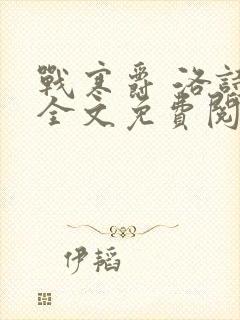 戰寒爵 洛詩
全文免費閱
伊韜